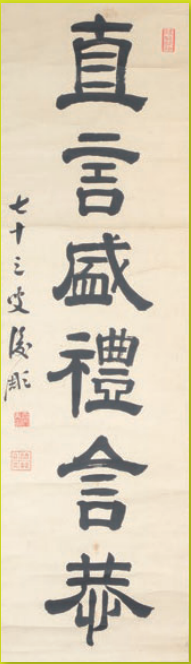 直言盛禮含恭
七十三叟後彫